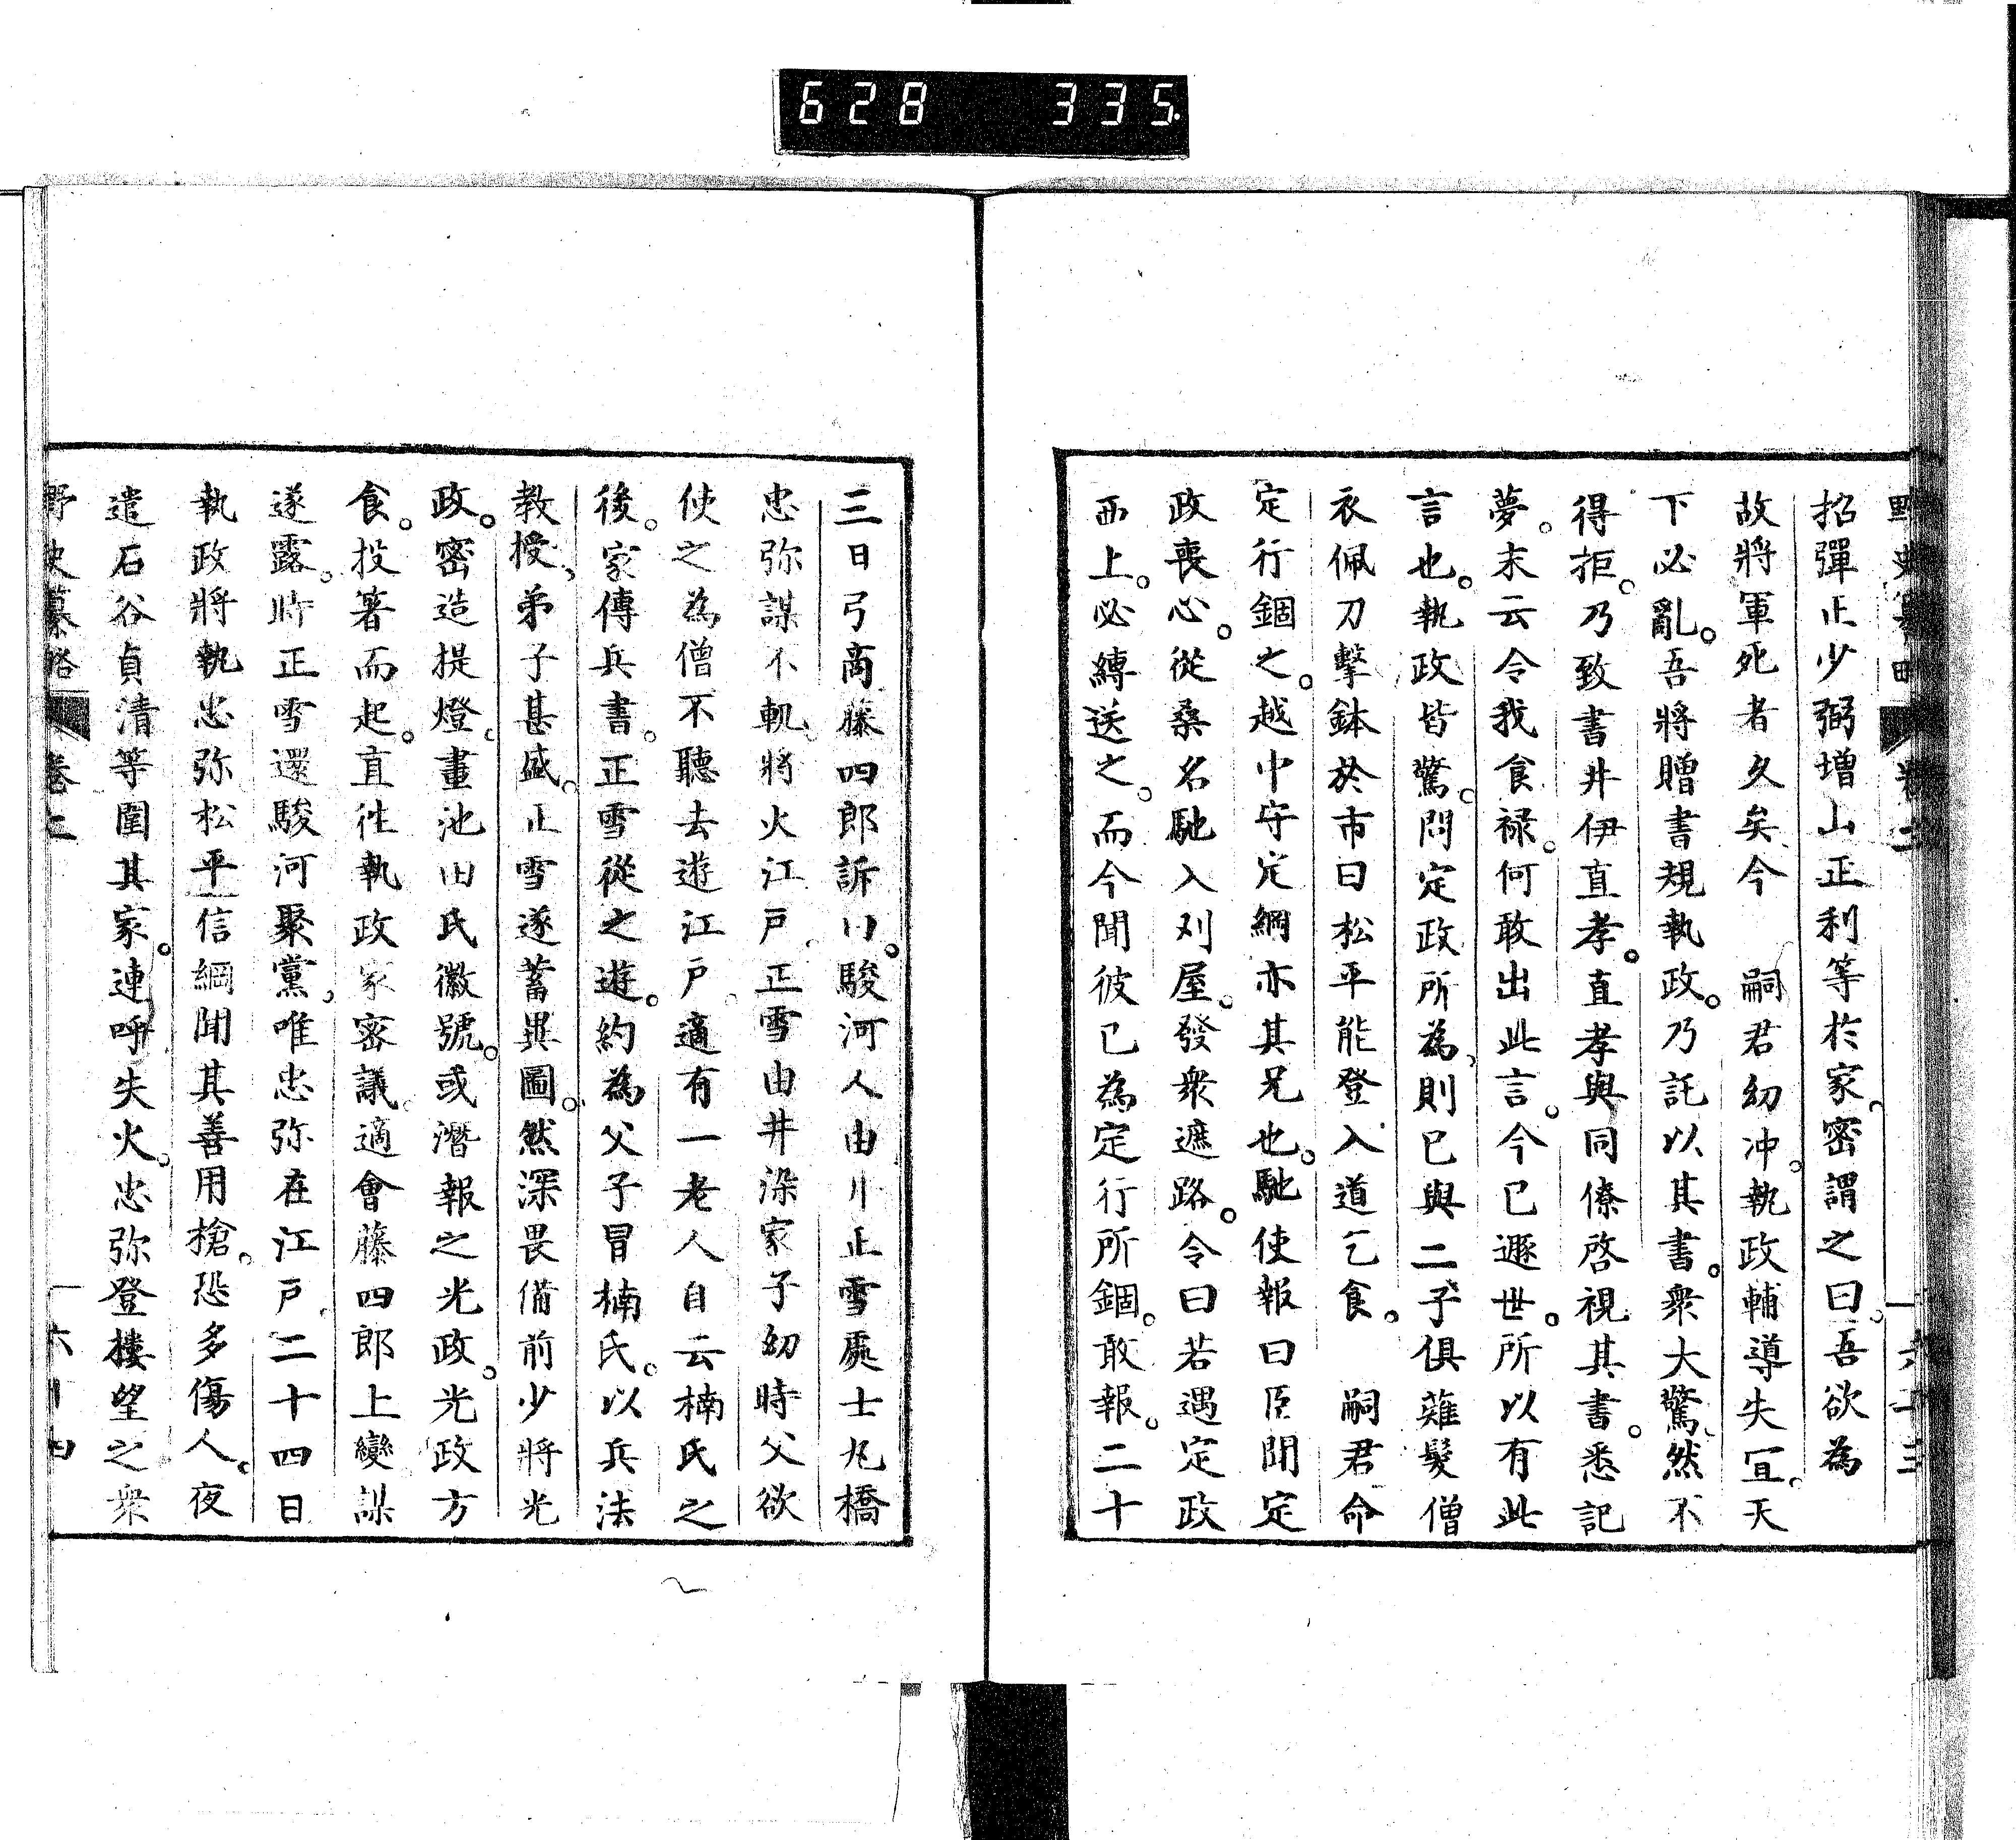 628 335.
招彈正少弼増山正利等於家。密謂之曰。吾欲為
故將軍死者久矣今　嗣君幼冲。執政輔導失宜。天
下必亂。吾將贈書規執政。乃託以其書。衆大驚。然不
得拒。乃致書井伊直孝。直孝與同僚啓視其書。悉記
夢。末云令我食禄。何敢出此言。今已遯世。所以有此
言也。執政皆驚。問定政所為。則已與二子俱薙髮僧
衣佩刀擊鉢於市曰松平能登入道乞食。　嗣君命
定行錮之。越中守定綱亦其兄也。馳使報曰臣聞定
政喪心。從桑名馳入刈屋。發衆遮路。令曰若遇定政
西上。必縛送之。而今聞彼已為定行所錮。敢報。二十
三日弓商藤四郎訴川。駿河人由川正雪處士丸橋
忠弥謀不軌。將火江戸。正雪由井染家子幼時父欲
使之為僧不聽去遊江戸。適有一老人自云楠氏之
後。家傳兵書。正雪從之遊。約為父子冒楠氏。以兵法
教授。弟子甚盛。正雪遂蓄異圖。然深畏備前少將光
政。密造提燈。畫池田氏徽號。或潛報之光政。光政方
食。投箸而起。直往執政家密議。適會藤四郎上變謀
遂露。時正雪還駿河聚黨。唯忠弥在江戸。二十四日
執政將執忠弥松平信綱聞其善用槍。恐多傷人。夜
遣石谷貞清等圍其家。連呼失火。忠弥登樓望之衆